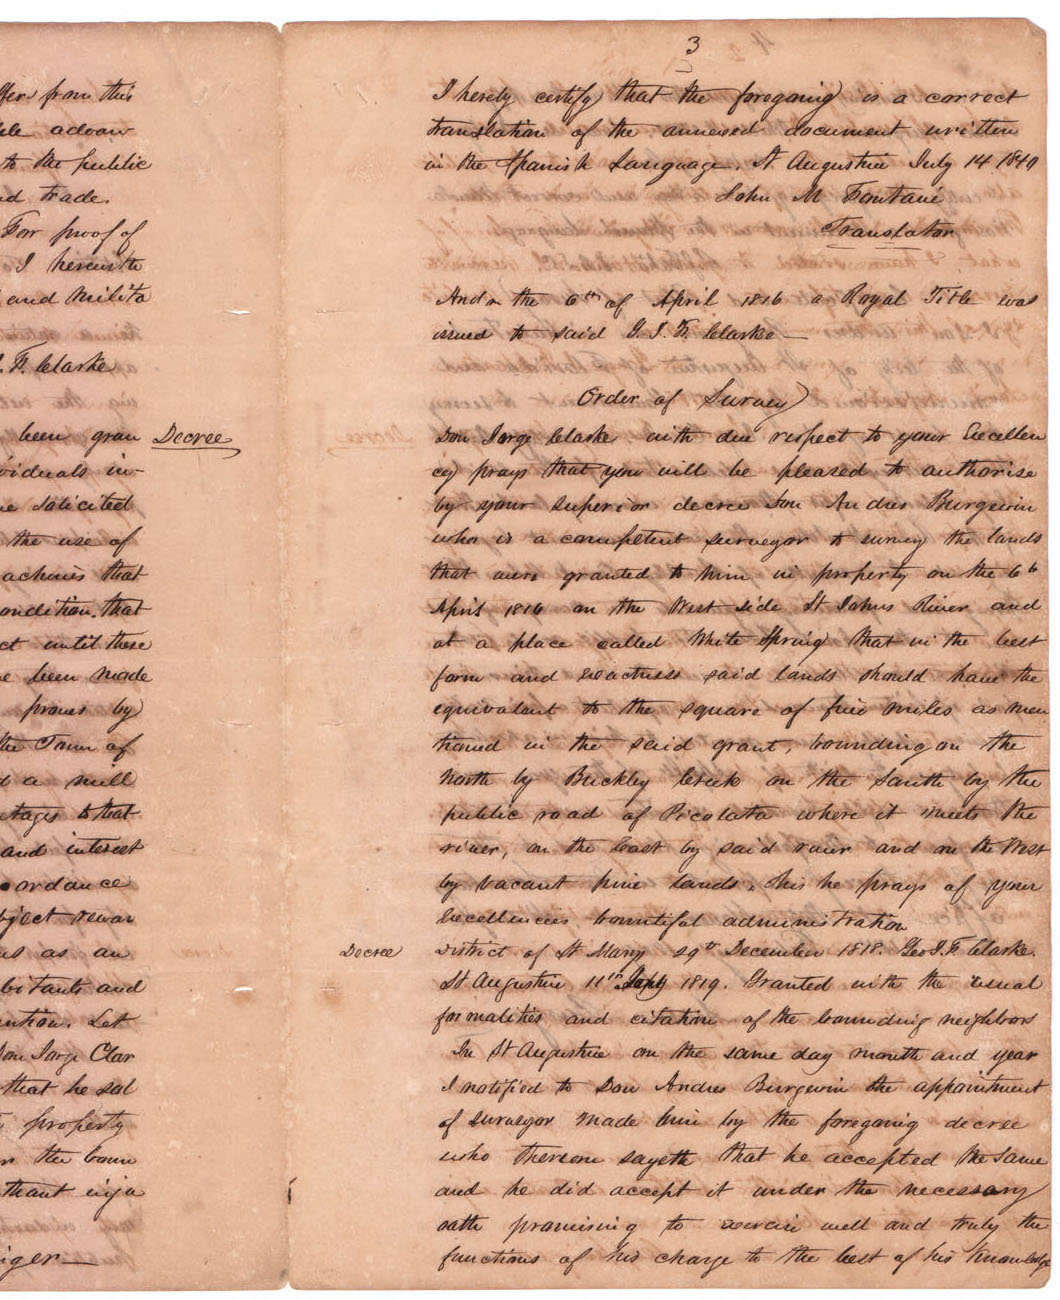 ffers from this
ble advan
to the public
nd trade.
For proof of
I herewith
and milita
. F. Clarke
been gran
viduals in-
he solicited
the use of
achines that
condition. that
ct until these
e been made
proves by
the Town of
d a mill
tages to that
and interest
ordance
bject rewar
us as an
bitants and
ention. Let
Don Jorge Clar
that he sol
property
the boun
thout inju
iger —
Decree
3
I hereby certify that the foregoing is a correct
translation of the annexed document written
in the Spanish Language. St Augustin July 14 1840
John M Fontané
Translator
And on the 6th of April 1816 a Royal Title was
issued to said G. J. F. Clarke —
Order of Survey
Don Jorge Clarke with due respect to your Excellen
cy prays that you will be pleased to authorise
by your superior decree Don Andres Burgevin
who is a competent surveyor to survey the lands
that were granted to him in property on the 6th
April 1816 on the West side St Johns River and
at a place called White Spring that in the best
form and exactness said lands should have the
equivalent to the square of five miles as men
tioned in the said grant, bounding on the
North by Buckley Creek on the South by the
public road of Picolata where it meets the
river, on the East by said river and on the West
by vacant pine lands, this he prays of your
Excellencies bountiful administration
District of St Mary 29th December 1818. Geo J. F. Clarke.
Decree St Augustin 11th 1819. Granted with the usual
formalities and citation of the bounding neighbors
In St Augustin on the same day month and year
I notified to Don Andres Burgevin the appointment
of surveyor made him by the foregoing decree
who thereon sayeth that he accepted the same
and he did accept it under the necessary
oath promising to exercise well and truly the
functions of his charge to the best of his knowledge